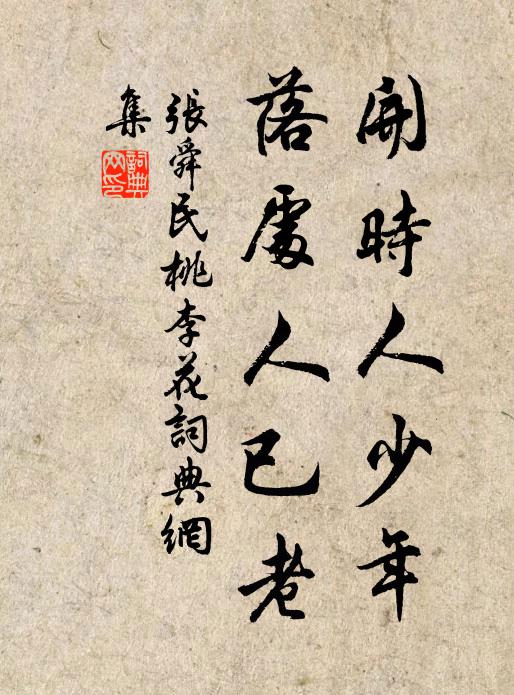 開時人少年
落處人已老
張舜民桃李花詞典網
集
詞典
网印